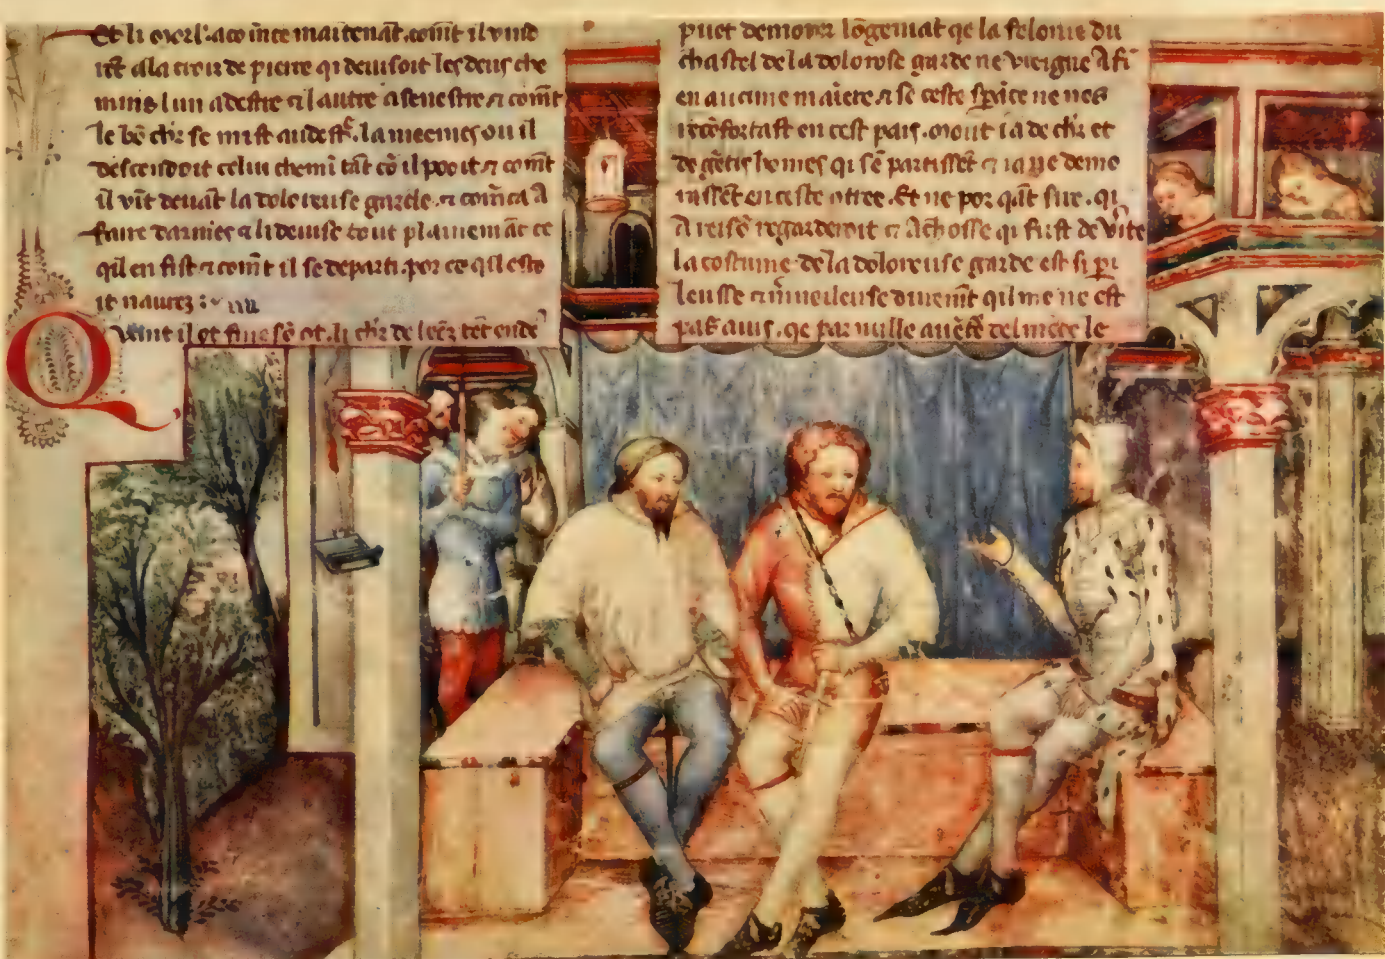 Et li morl'. aconte maitenãt. comt il vind
ret a la croiz de pierre qi devisoit les deus che
mins lun a destre et lautre a senestre et comt
le bõ chr se mist au destr. la meemes ou il
descendoit celui chemi tãt cõ il pooit et comt
il vit devãt la doloreuse garde. et comca a
faire darmes et li devise tout plainemãt ce
qil en fist et comt il se departi. por ce qil esto
it navrez :
Vant il ot fine sõ cõt. li chr de
puet demorer lõgemãt qe la felonie du
chastel de la dolorose garde ne viegne a fi
en aucune maiere. et se ceste spãce ne nos
recõfortast en cest pais. mout i a de chr et
de gẽtis homes qi sẽ partissẽt et ia ne demo
rassẽt en ceste otree. Et ne por qãt sire. qi
a reisõ regarderoit et a chosse qi fust de vite
la costume de la doloreuse garde est si pi
leusse et mveileuse divemt qil me ne est
pas avis. qe par nulle avẽte del mõde le